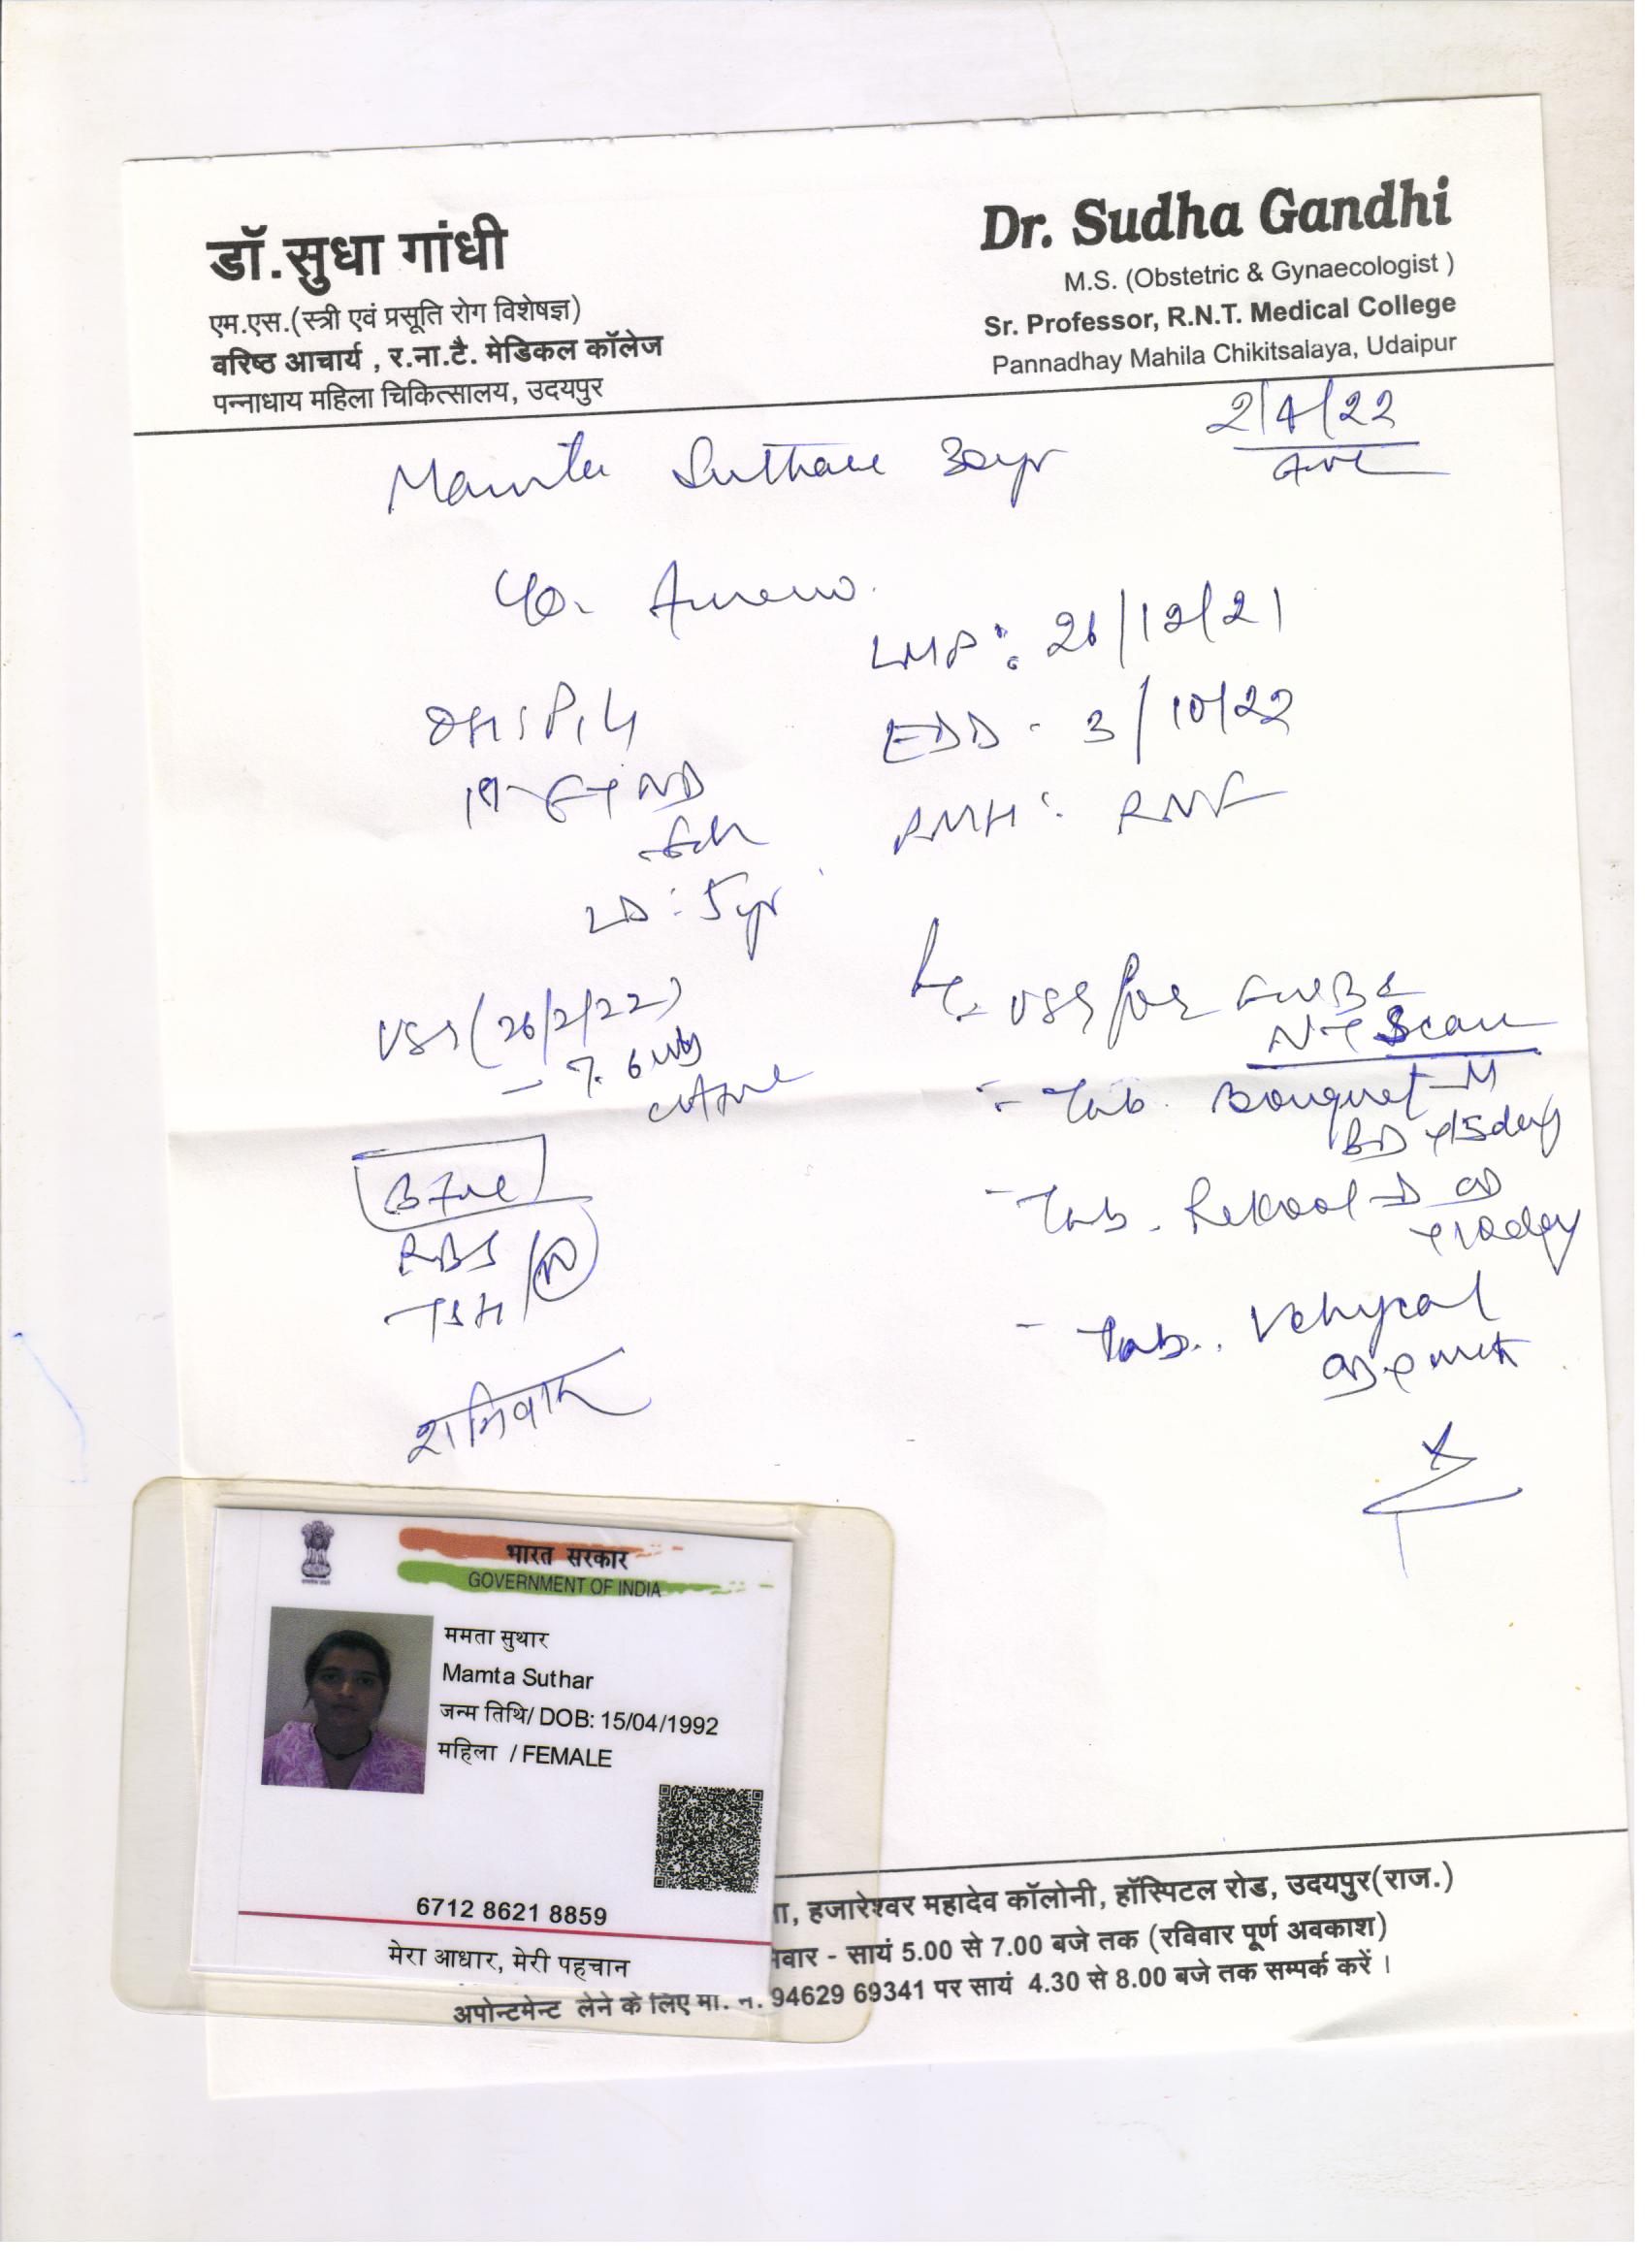 डॉ.सुधा गांधी
एम.एस.(स्त्री एवं प्रसूति रोग विशेषज्ञ)
वरिष्ठ आचार्य , र.ना.टै. मेडिकल कॉलेज
पन्नाधाय महिला चिकित्सालय, उदयपुर
Dr. Sudha Gandhi
M.S. (Obstetric & Gynaecologist )
Sr. Professor, R.N.T. Medical College
Pannadhay Mahila Chikitsalaya, Udaipur
2/4/22
Mamta Suthar 30yr
LMP: 26/12/21
EDD - 3/10/22
LD: 5yr
USG (26/2/22)
- 7.6 wks
USG for
NT Scan
- Tab. Bouquet-M
BD x 15 day
- Tab. Rekool-D OD
x 10 day
- Tab.
B +ve
RBS
TSH / N
शनिवार
भारत सरकार
GOVERNMENT OF INDIA
ममता सुथार
Mamta Suthar
जन्म तिथि/ DOB: 15/04/1992
महिला / FEMALE
6712 8621 8859
मेरा आधार, मेरी पहचान
हजारेश्वर महादेव कॉलोनी, हॉस्पिटल रोड, उदयपुर(राज.)
- सायं 5.00 से 7.00 बजे तक (रविवार पूर्ण अवकाश)
अपोन्टमेन्ट लेने के लिए मो. नं. 94629 69341 पर सायं 4.30 से 8.00 बजे तक सम्पर्क करें ।